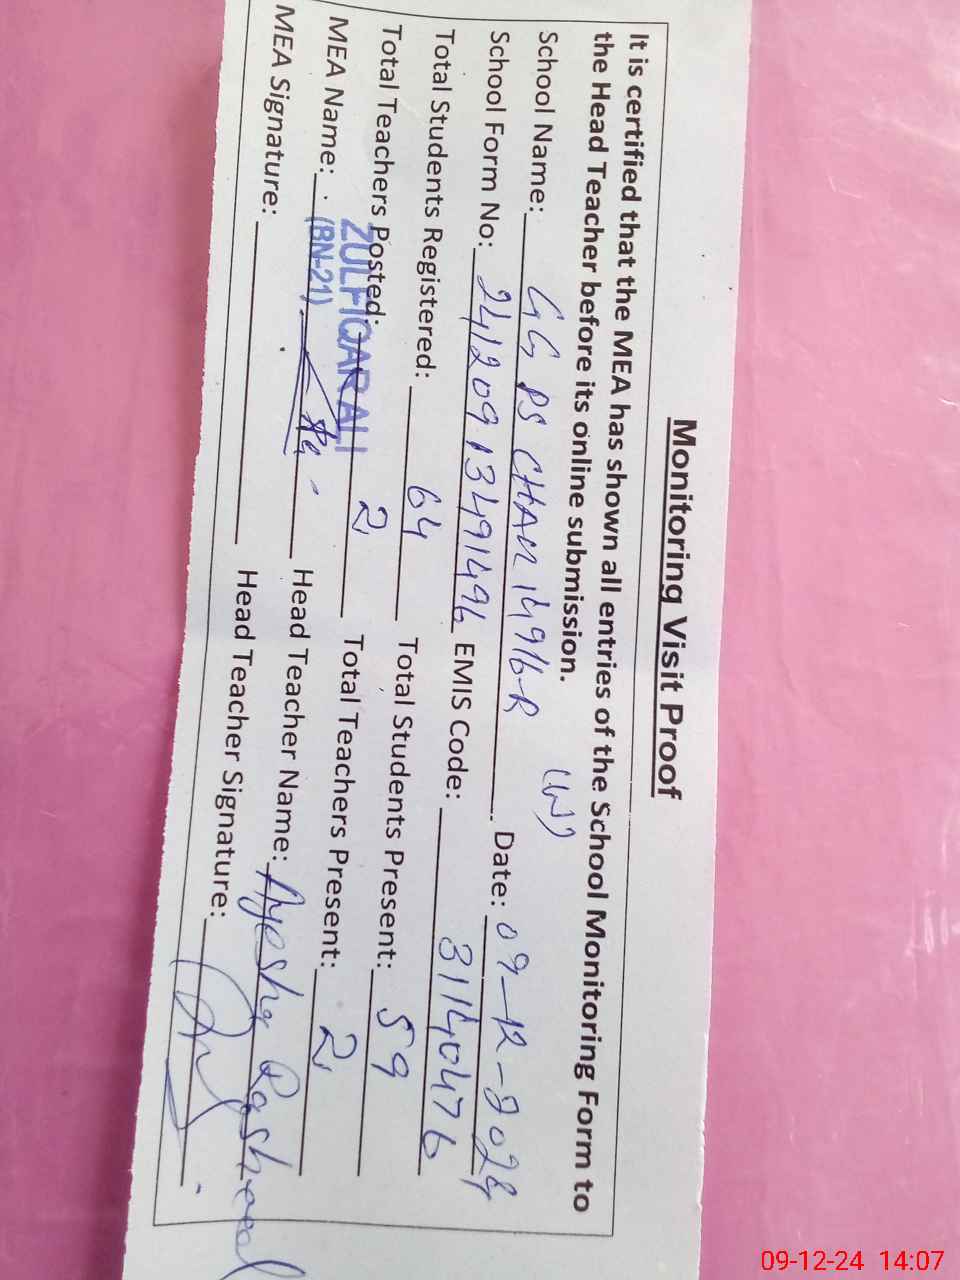 Monitoring Visit Proof
It is certified that the MEA has shown all entries of the School Monitoring Form to
the Head Teacher before its online submission.
(W)
School Name: GGPS CHAK 149/6-R Date: 09-12-2024
School Form No: EMIS Code: 31140476
Total Students Registered: 64 Total Students Present: 59
Total Teachers Posted: 2 Total Teachers Present: 2
MEA Name: ZULFIQAR ALI Head Teacher Name: Ayesha Rasheed
(BN-21)
MEA Signature: Head Teacher Signature:
09-12-24 14:07